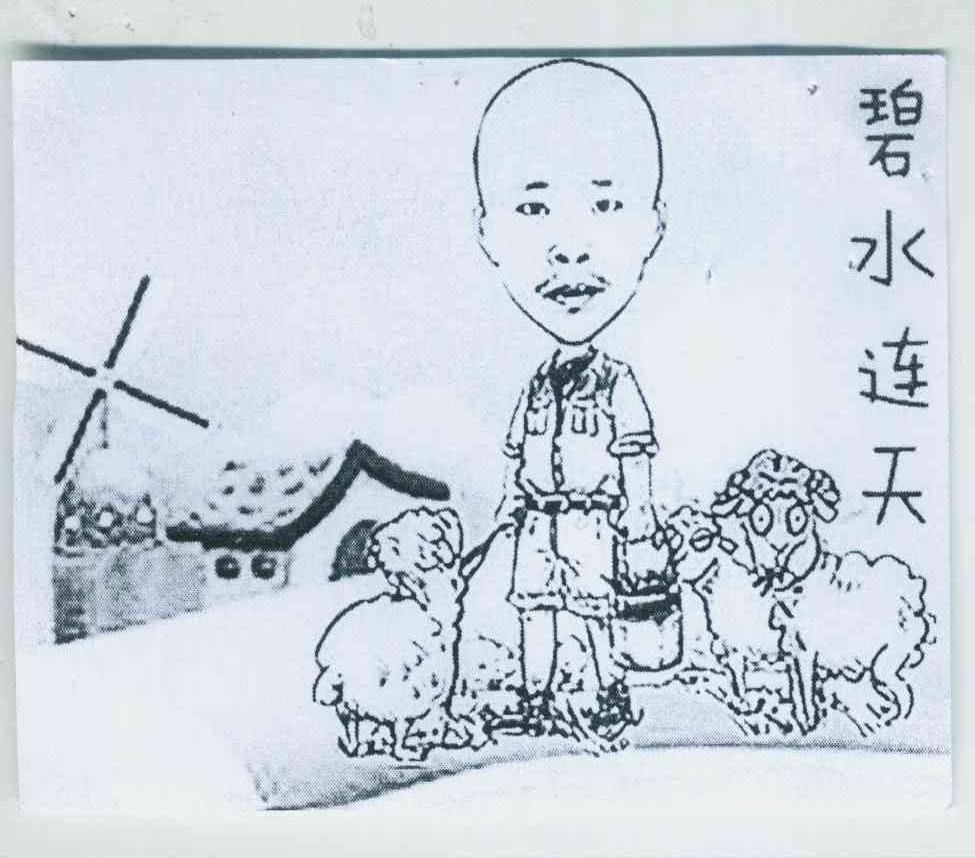 碧水连天